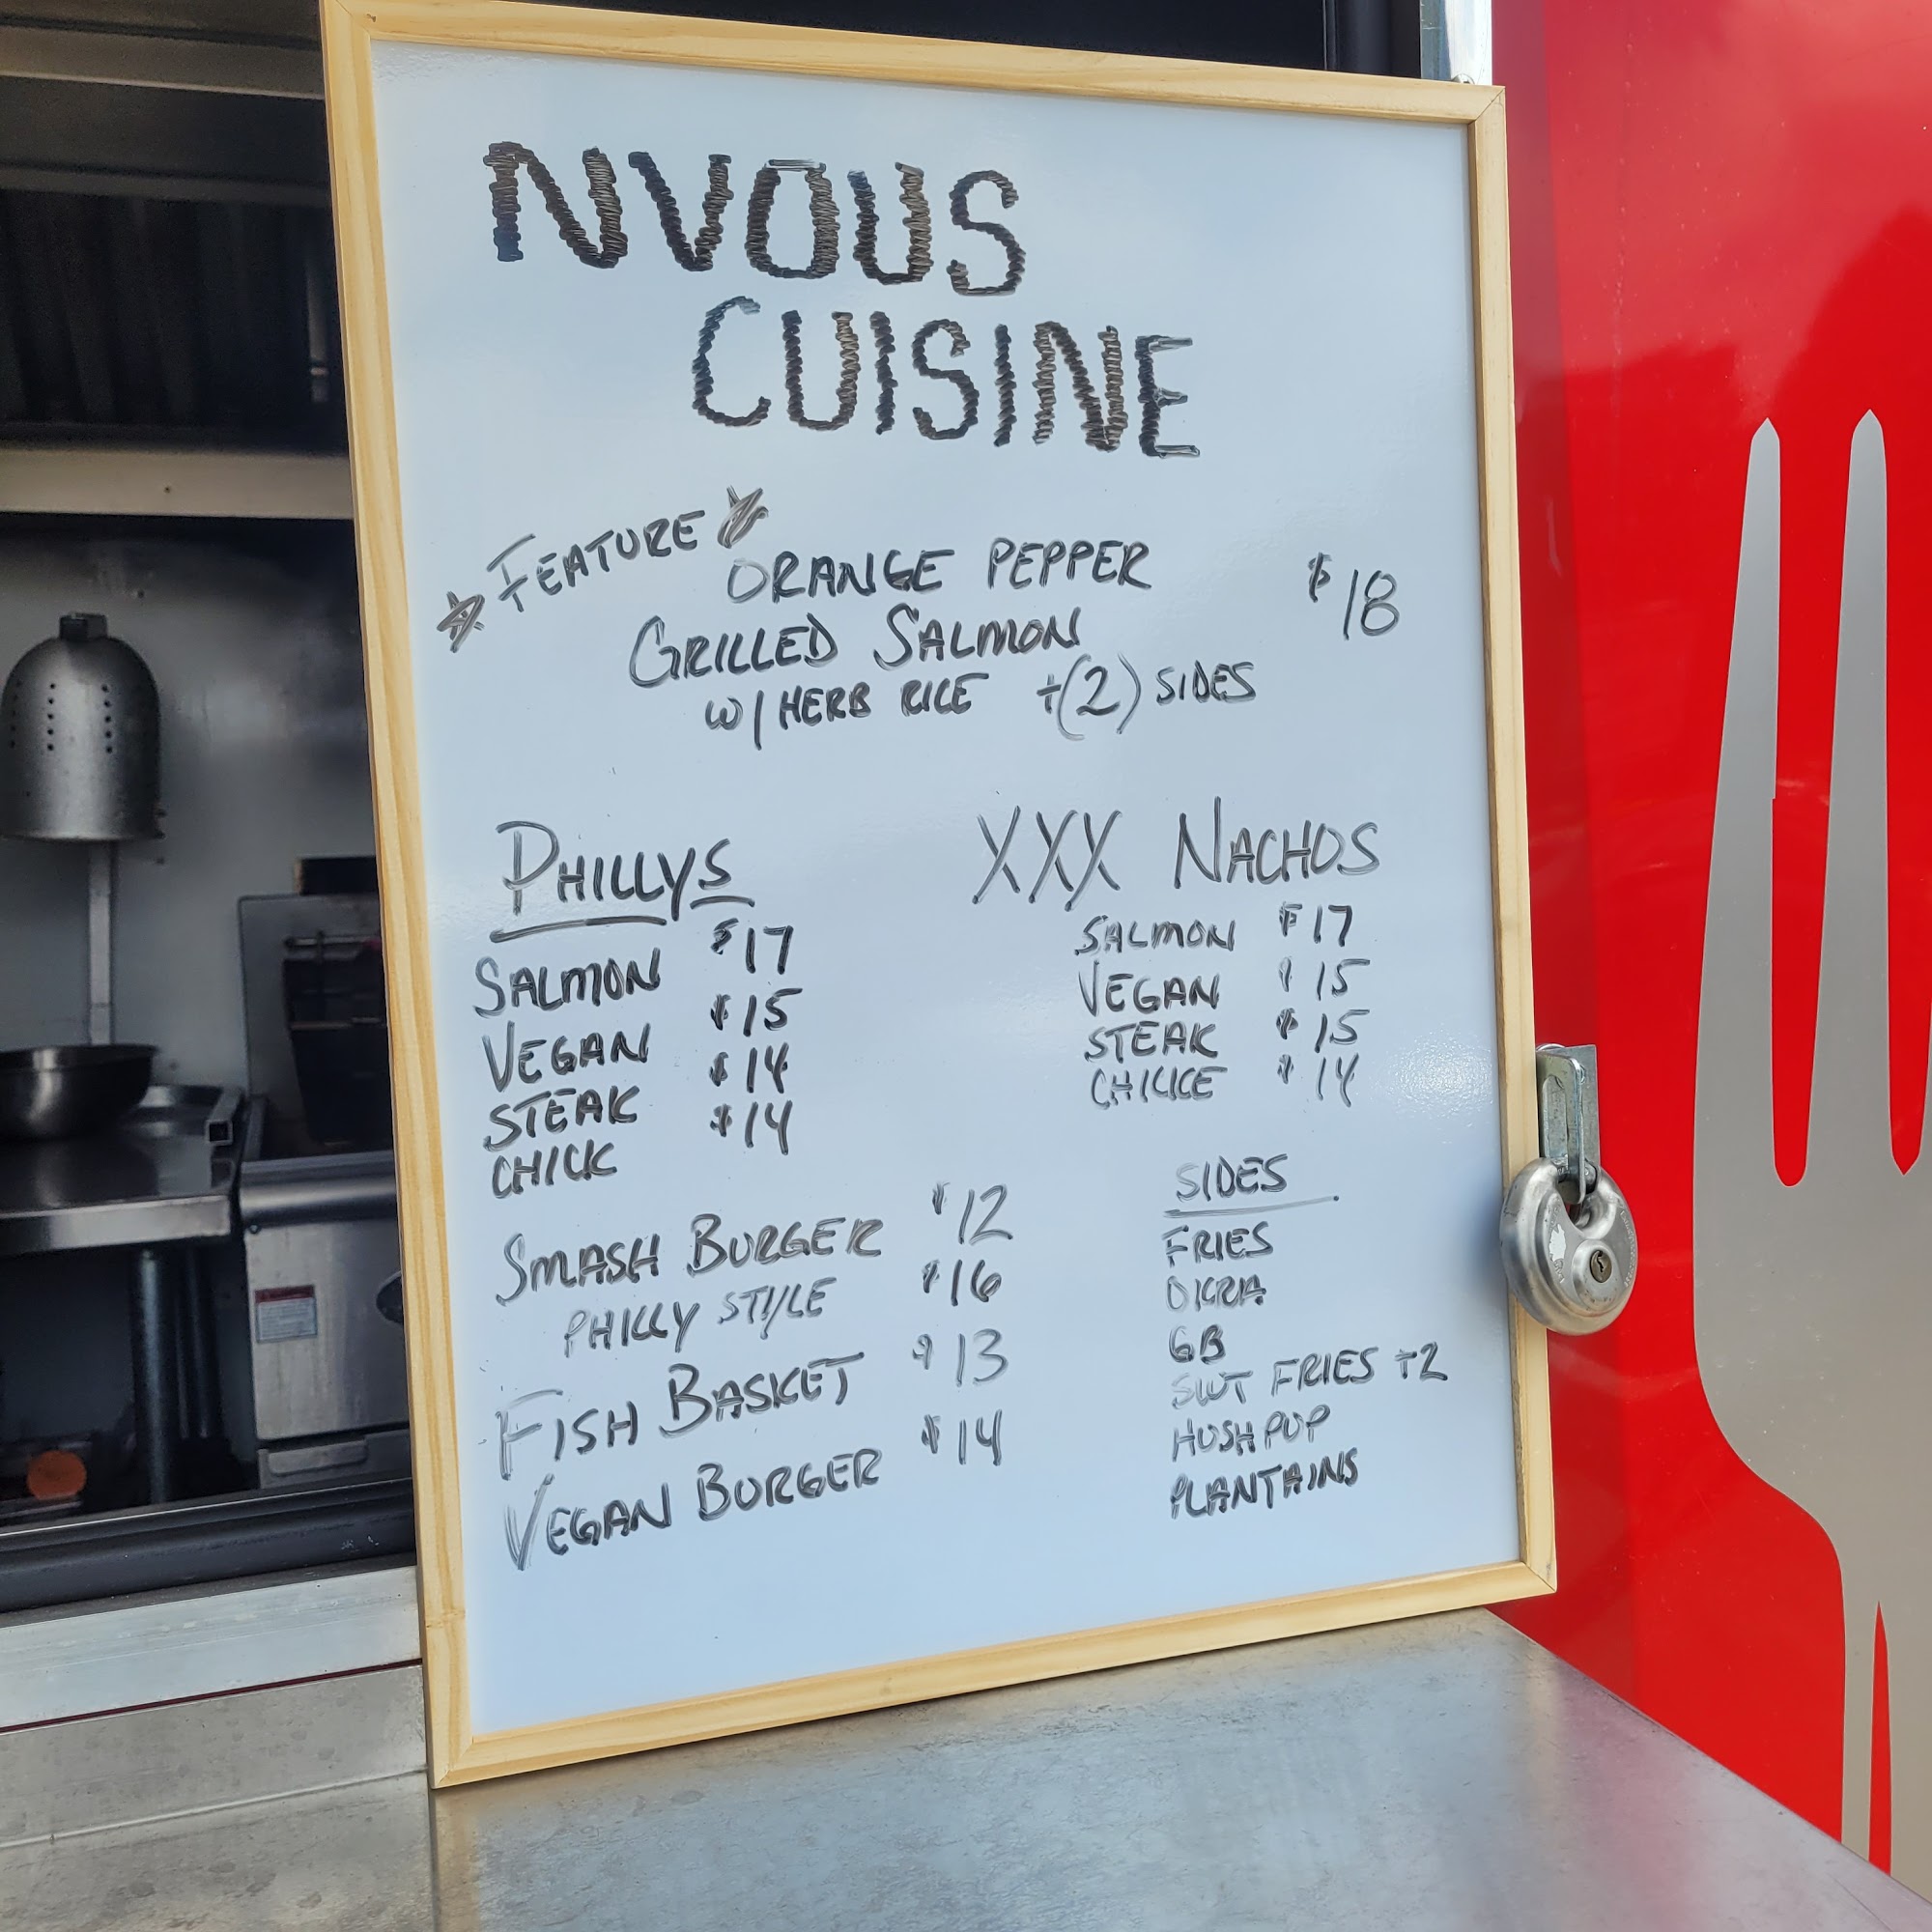 NVOUS
CUISINE
FEATURE
ORANGE PEPPER $18
GRILLED SALMON
W/ HERB RICE +(2) SIDES
PHILLYS
SALMON $17
VEGAN $15
STEAK $14
CHICK $14
XXX NACHOS
SALMON $17
VEGAN $15
STEAK $15
CHICKE $14
SMASH BURGER $12
PHILLY STYLE $16
FISH BASKET $13
VEGAN BURGER $14
SIDES
FRIES
OKRA
GB
SWT FRIES +2
HUSHPUP
PLANTAINS